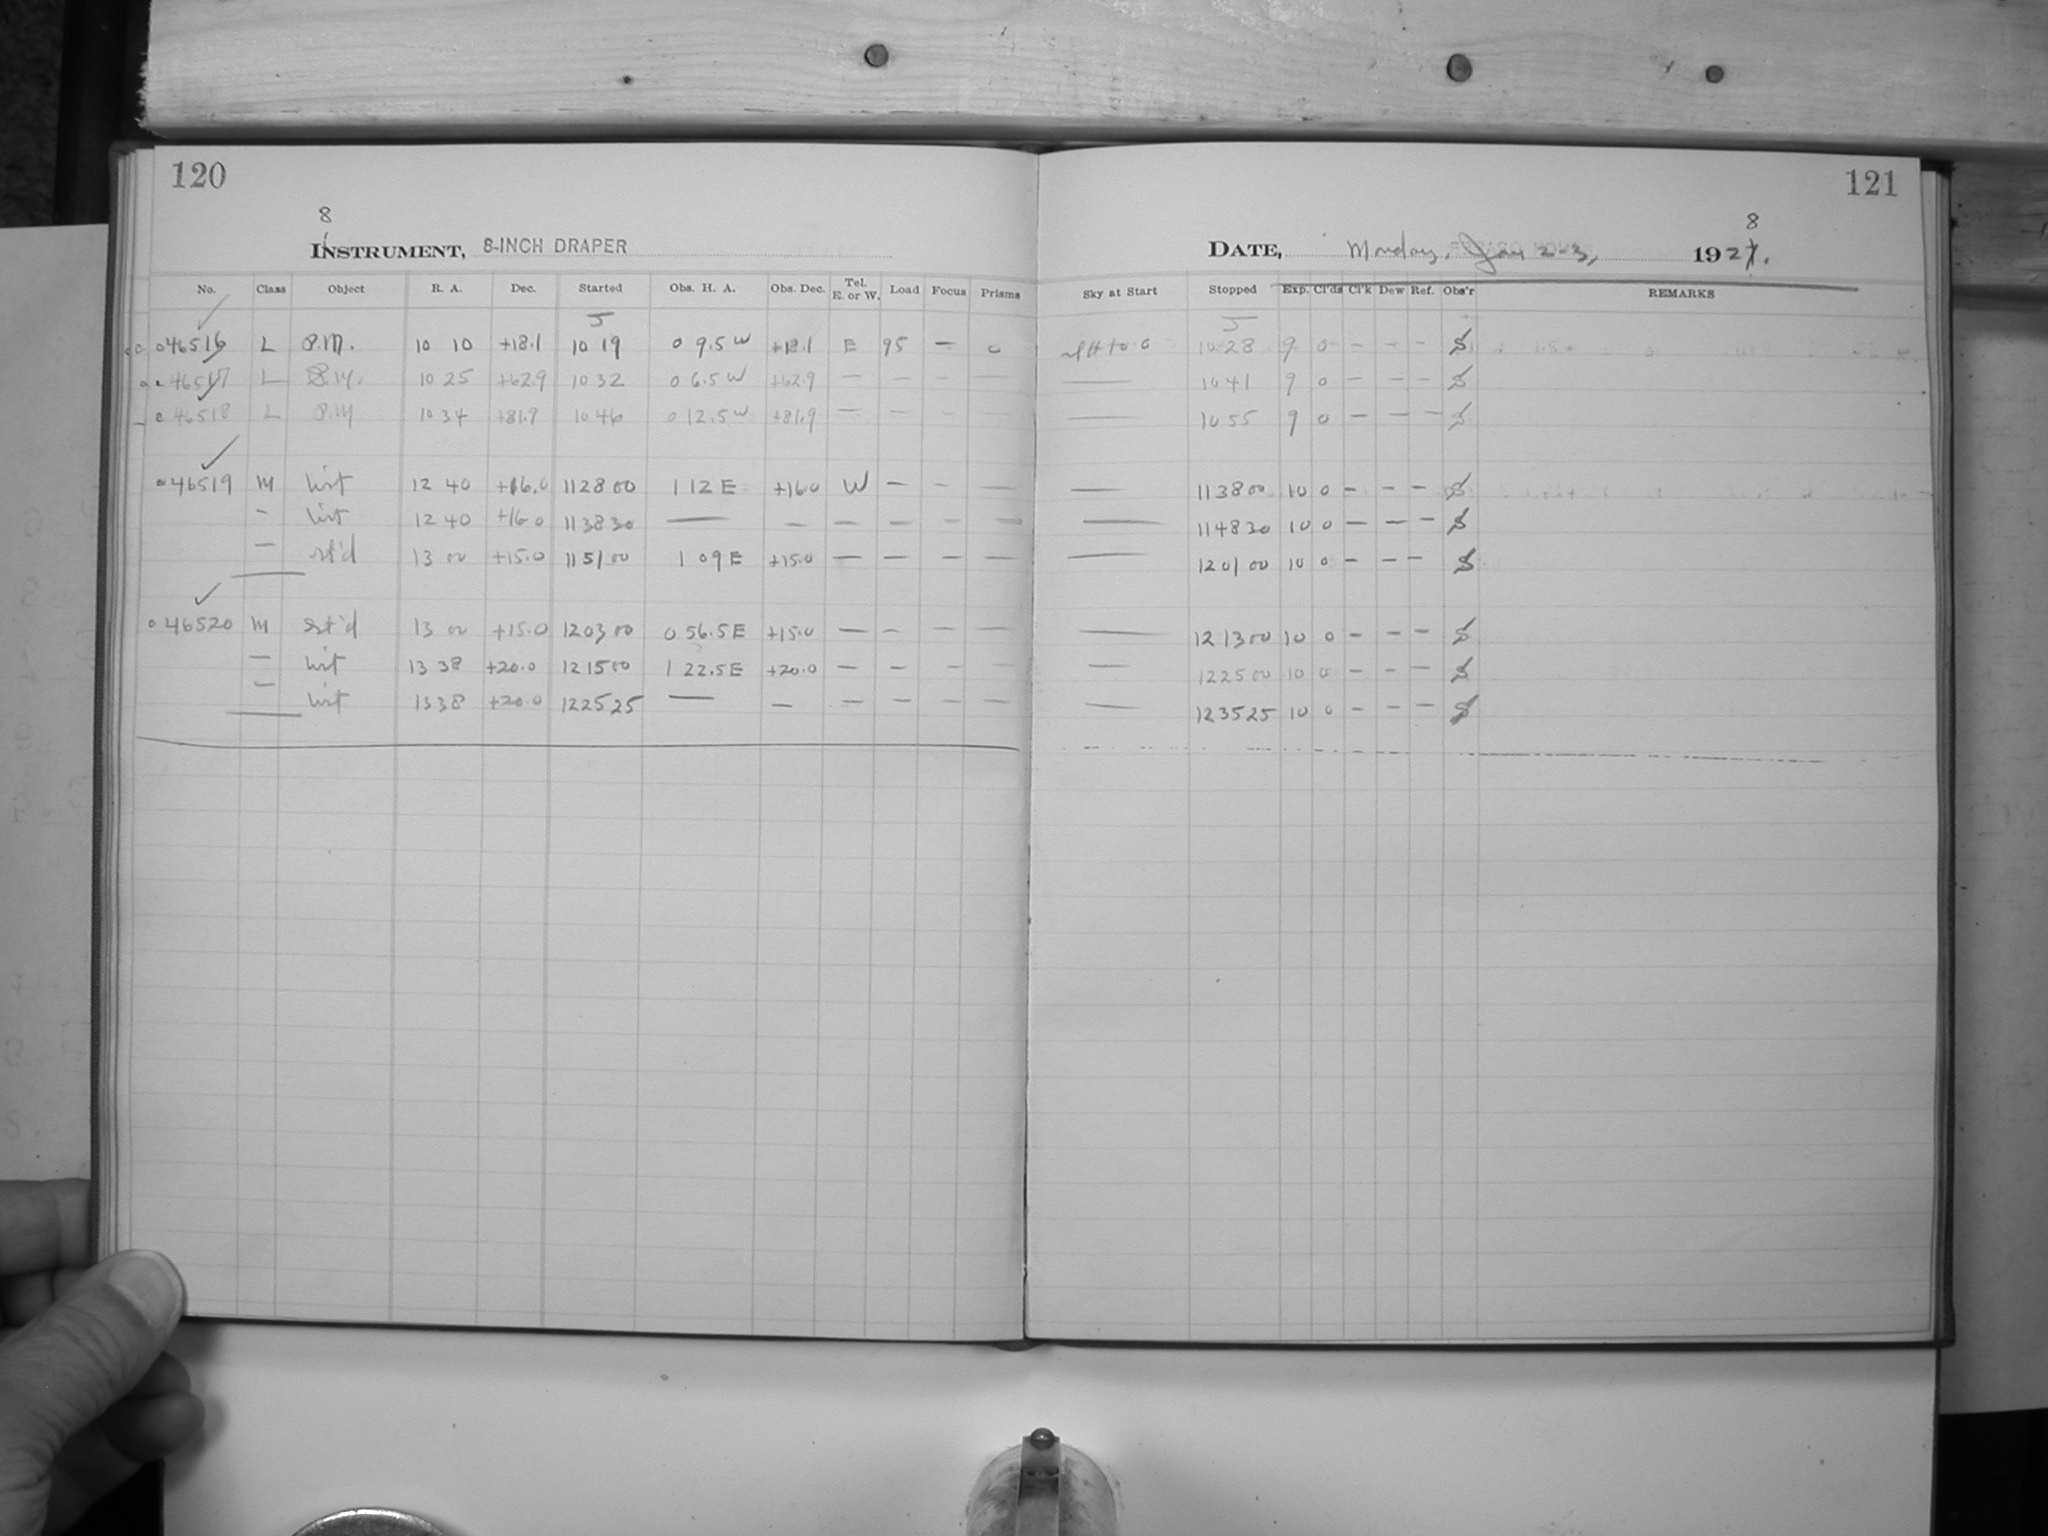 120
8
INSTRUMENT, 8-INCH DRAPER
No. Class Object R. A. Dec. Started Obs. H. A. Obs. Dec. Tel. E. or W. Load Focus Prisms
J
46516 L P.M. 10 10 +18.1 10 19 0 9.5 W +18.1 E 95 — 0
46517 L P.M. 10 25 +62.9 10 32 0 6.5 W +62.9 — — — —
46518 L P.M 10 34 +81.9 10 46 0 12.5 W +81.9 — — — —
46519 M 12 40 +16.0 11 28 00 1 12 E +16.0 W — — —
— 12 40 +16.0 11 38 30 — — — — — —
— st'd 13 00 +15.0 11 51 00 1 09 E +15.0 — — — —
46520 M st'd 13 00 +15.0 12 03 00 0 56.5 E +15.0 — — — —
— 13 38 +20.0 12 15 00 1 22.5 E +20.0 — — — —
— 13 38 +20.0 12 25 25 — — — — — —
121
8
DATE, Monday, Jan 2-3, 1927.
Sky at Start Stopped Exp. Cl'ds Cl'k Dew Ref. Obs'r REMARKS
J
10 28 9 0 — — — S
— 10 41 9 0 — — — S
— 10 55 9 0 — — — S
— 11 38 00 10 0 — — — S
— 11 48 30 10 0 — — — S
— 12 01 00 10 0 — — — S
— 12 13 00 10 0 — — — S
— 12 25 00 10 0 — — — S
— 12 35 25 10 0 — — — S